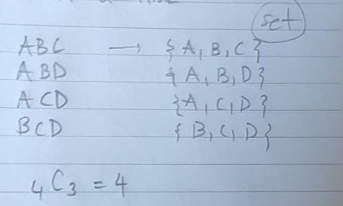 set
ABC → {A, B, C}
ABD {A, B, D}
ACD {A, C, D}
BCD {B, C, D}
₄C₃ = 4